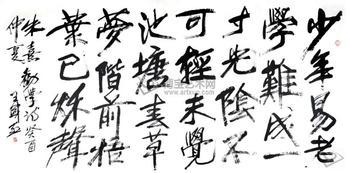 少年易老
學難成一
寸光陰不
可輕未覺
池塘春草
夢階前梧
葉已秋聲
朱熹勸學詩癸酉
仲夏